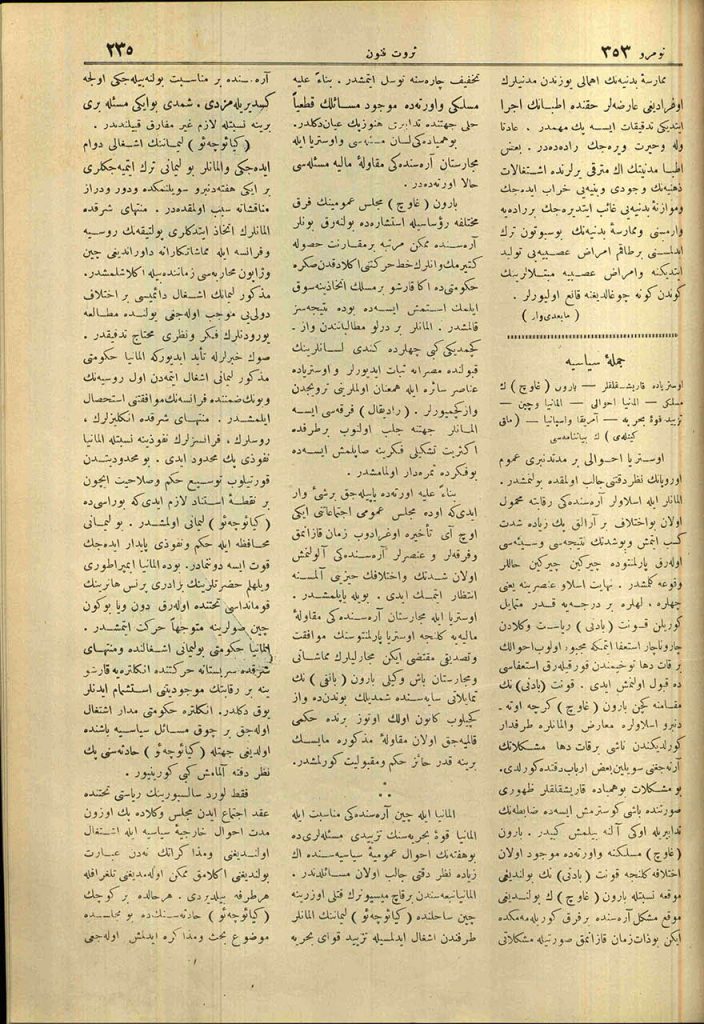 نومرو ٣٥٣
ثروت فنون
٢٣٥
ممارسهٔ بدنیه‌نك اهمالی یوزندن مدنیلرك
اوغرادیغی عارضه‌لر حقنده اطبانك اجرا
ایتدیكی تدقیقات ایسه پك مهمدر . عادتا
وله وحیرت ویره‌جك راده‌ده‌در . بعض
اطبا مدنیتك اك مترقی یرلرنده اشتغالات
ذهنیه‌نك وجودی وبنیه‌یی خراب ایده‌جك
وموازنهٔ بدنیه‌یی غائب ایتدیره‌جك برراده‌یه
وارمسنی وممارسهٔ بدنیه‌نك بوسبوتون ترك
ایدلمسنی برطاقم امراض عصبیه‌یی تولید
ایتدیكنه وامراض عصبیه مبتلالرینك
كوندن كونه چوغالدیغنه قانع اولیورلر .
( مابعدی وار )
جملهٔ سیاسیه
اوستریاده قاریشقلقلر — بارون ( غاوچ ) ك
مسلكی — المانیا احوالی — المانیا وچین —
تزیید قوهٔ بحریه — آمریقا واسپانیا — ( ماق
كینله‌ی ) ك بیاننامه‌سی
اوستریا احوالی بر مدتدنبری عموم
اوروپانك نظر دقتنی جالب اولمقده بولنمشدر .
المانلر ایله اسلاولر آره‌سنده‌كی رقابته محمول
اولان بواختلاف بر آرالق پك زیاده شدت
كسب ایتمش وبوشدتك نتیجه‌سی وسیئه‌سی
اوله‌رق پارلمنتوده چیركین چیركین حاللر
وقوعه كلمشدر . نهایت اسلاو عنصرینه یعنی
چهلره ، لهلره بر درجه‌یه قدر متمایل
كوریلن قونت ( بادنی ) ریاست وكلادن
چاروناچار استعفا ایتمكه مجبور اولوب احوالك
بر قات دها توخیمندن قورقیله‌رق استعفاسی
ده قبول اولنمش ایدی . قونت (بادنی) نك
مقامنه كچن بارون ( غاوچ ) كرچه اوته‌ -
دنبرو اسلاولره معارض والمانلره طرفدار
كورلدیكندن ناشی برقات دها مشكلاتك
آرته‌جغنی سویلین بعض ارباب دقتده كورلدی.
بو مشكلات بوهمیاده قاریشقلقلر ظهوری
صورتنده باشی كوسترمش ایسه‌ده ضابطه‌نك
تدابیریله اوكی آلنه بیلمش كبیدر . بارون
( غاوچ ) مسلكنه واورته‌ده موجود اولان
اختلافه كلنجه قونت ( بادنی ) نك بولندیغی
موقعه نسبتله بارون ( غاوچ ) ك بولندیغی
موقع مشكل آره‌سنده برفرق كوریله‌مه‌مكده
ایكن بوذات زمان قازانمق صورتیله مشكلاتی
تخفیف چاره‌سنه توسل ایتمشدر . بناءً علیه
مسلكی واورته‌ده موجود مسائلك قطعیاً
حلی جهتنده تدابیری هنوز پك عیان دكلدر.
بوهمیاده‌كی لسان مسئله‌سی واوستریا ایله
مجارستان آره‌سنده‌كی مقاولهٔ مالیه مسئله‌سی
حالا اورته‌ده‌در .
بارون ( غاوچ ) مجلس عمومینك فرق
مختلفه رؤساسیله استشاره‌ده بولنه‌رق بونلر
آره‌سنده ممكن مرتبه برمقارنت حصوله
كتیرمك وانلرك خط حركتنی اكلادقدن صكره
حكومتی‌ده اكا قارشو برمسلك اتخاذینه سوق
ایلمك استمش ایسه‌ده بوده نتیجه‌سز
قالمشدر . المانلر بر درلو مطالباتندن واز -
كچمدیكی كبی چهلرده كندی لسانلرینك
قبولنده مصرانه ثبات ایدیورلر و اوستریاده
عناصر سائره ایله همعنان اولملرینی ترویجدن
وازكچمیورلر . ( رادیقال ) فرقه‌سی ایسه
المانلر جهتنه جلب اولنوب برطرفده
اكثریت تشكیلی فكرینه صاپلمش ایسه‌ده
بوفكرده ثمره‌دار اولمامشدر .
بناءً علیه اورته‌ده یاپیله‌جق برشی وار
ایدی كه اوده مجلس عمومی اجتماعاتنی ایكی
اوچ آی تأخیره اوغرادوب زمان قازانمق
وفرقه‌لر و عنصرلر آره‌سنده‌كی آلولنمش
اولان شدتك واختلافك حیزینی آلمسنه
انتظار ایتمك ایدی . بویله یاپلمشدر .
اوستریا ایله مجارستان آره‌سنده‌كی مقاولهٔ
مالیه‌یه كلنجه اوستریا پارلمنتوسنك موافقت
وتصدیقی مقتضی ایكن مجارلیلرك مماشاتی
ومجارستان باش وكیلی بارون ( بانفی ) نك
تمایلاتی سایه‌سنده شمدیلك بوندن‌ده واز
كچیلوب كانون اولك اوتوز برنده حكمی
قالمیه‌جق اولان مقاولهٔ مذكوره مایسك
برینه قدر حائز حكم ومقبولیت كورلمشدر.
المانیا ایله چین آره‌سنده‌كی مناسبت ایله
المانیا قوهٔ بحریه‌سنك تزییدی مسئله‌لری‌ده
بوهفته‌نك احوال عمومیهٔ سیاسیه‌سنده اك
زیاده نظر دقتی جالب اولان مسائلدندر .
المانیا تبعه‌سندن برقاچ میسیونرك قتلی اوزرینه
چین ساحلنده ( كیائوچه‌ئو ) لیماننك المانلر
طرفندن اشغال ایدلمسیله تزیید قوای بحریه
آره‌سنده بر مناسبت بولنه‌بیله‌جكی اولجه
كسدیریله‌مزدی ، شمدی بوایكی مسئله بری
برینه نسبتله لازم غیر مفارق قبیلندندر .
( كیائوچه‌ئو ) لیماننك اشغالی دوام
ایده‌جكی والمانلر بو لیمانی ترك ایتمیه‌جكلری
بر ایكی هفته‌دنبرو سویلنمكده ودور ودراز
مناقشاته سبب اولمقده‌در . منتهای شرقده
المانلرك اتخاذ ایتدكلری پولتیقه‌نك روسیه
وفرانسه ایله مماشاتكارانه داوراندیغی چین
وژاپون محاربه‌سی زماننده بیله اكلاشلمشدر.
مذكور لیمانك اشغال دائمیسی بر اختلاف
دولی‌یی موجب اوله‌جغی یولنده مطالعه
یورودنلرك فكر ونظری محتاج تدقیقدر .
صوك خبرلرله تأید ایدیوركه المانیا حكومتی
مذكور لیمانی اشغال ایتمه‌دن اول روسیه‌نك
وبونك ضمننده فرانسه‌نك موافقتنی استحصال
ایلمشدر . منتهای شرقده انكلیزلرك ،
روسلرك ، فرانسزلرك نفوذینه نسبتله المانیا
نفوذی پك محدود ایدی . بو محدودیتدن
قورتیلوب توسیع حكم وصلاحیت ایچون
بر نقطهٔ استناد لازم ایدی كه بوراسی‌ده
( كیائوچه‌ئو ) لیمانی اولمشدر . بو لیمانی
محافظه ایله حكم ونفوذی پایدار ایده‌جك
قوت ایسه دونتمادر. بوده المانیا ایمپراطوری
ویلهلم حضرتلرینك برادری پرنس هانرینك
قومانداسی تحتنده اوله‌رق دون ویا بوكون
چین صولرینه متوجهاً حركت ایتمشدر .
المانیا حكومتی بولیمانی اشغالنده ومنتهای
شرقده سربستانه حركتنده انكلتره‌یه قارشو
ینه بر رقابتك موجودیتنی استشمام ایدنلر
یوق دكلدر. انكلتره حكومتی مدار اشتغال
اوله‌جق بر چوق مسائل سیاسیه باشنده
اولدیغی جهتله ( كیائوچه‌ئو ) حادثه‌سنی پك
نظر دقته آلمامش كبی كورینیور .
فقط لورد سالسبورینك ریاستی تحتنده
عقد اجتماع ایدن مجلس وكلاده پك اوزون
مدت احوال خارجیهٔ سیاسیه ایله اشتغال
اولندیغی ومذاكراتك نه‌دن عبارت
بولندیغی اكلامق ممكن اوله‌مدیغنی تلغرافله
هرطرفه بیلدیردی . هرحالده بر كوچك
( كیائوچه‌ئو ) حادثه‌سنك‌ده بو مجلسده
موضوع بحث ومذاكره ایدلمش اوله‌جغی